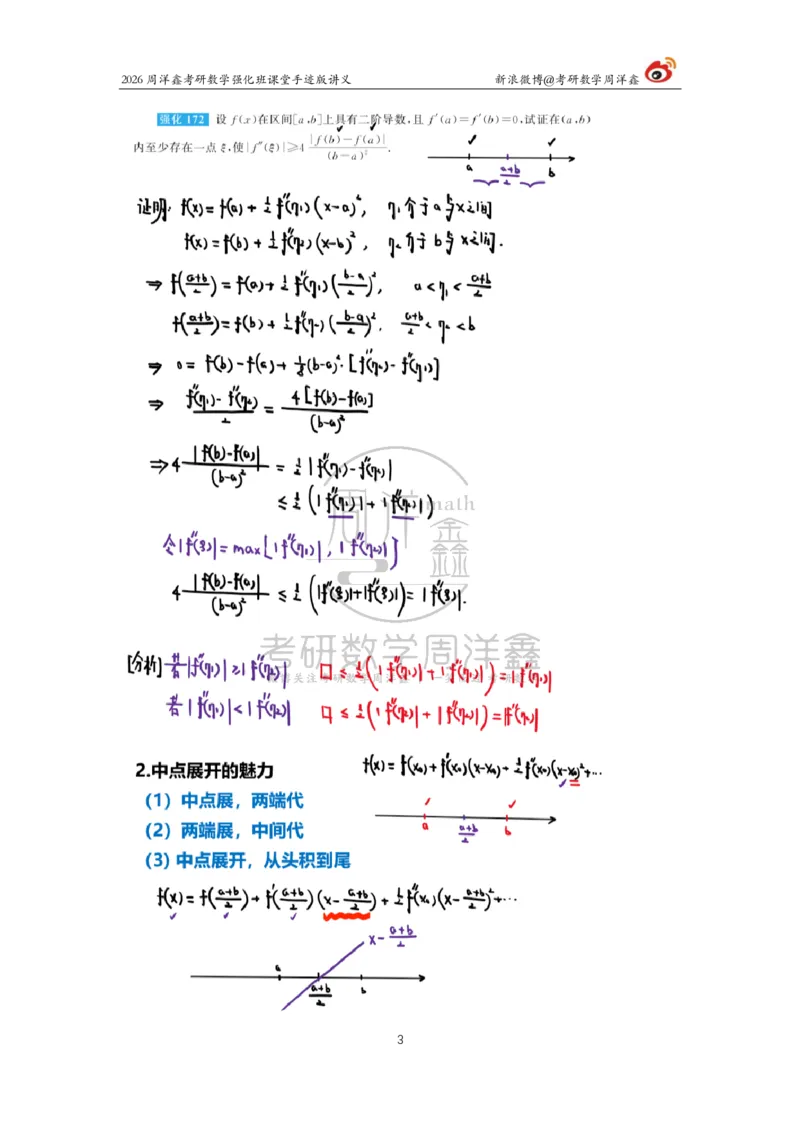 2026 周洋鑫考研数学强化班课堂手迹版讲义 新浪微博@考研数学周洋鑫
强化 172 设 f(x)在区间[a,b]上具有二阶导数,且 f′(a)=f′(b)=0,试证在(a,b)
内至少存在一点 ξ,使|f″(ξ)|≥4 |f(b)-f(a)|/(b-a)².
a a+b/2 b
证明: f(x)=f(a)+½f″(η₁)(x-a)², η₁介于a与x之间
f(x)=f(b)+½f″(η₂)(x-b)², η₂介于b与x之间.
⇒ f(a+b/2)=f(a)+½f″(η₁)(b-a/2)², a<η₁<a+b/2
f(a+b/2)=f(b)+½f″(η₂)(b-a/2)², a+b/2<η₂<b
⇒ 0=f(b)-f(a)+⅛(b-a)²·[f″(η₂)-f″(η₁)]
⇒ f″(η₁)-f″(η₂)/2 = 4[f(b)-f(a)]/(b-a)²
⇒ 4 |f(b)-f(a)|/(b-a)² = ½|f″(η₁)-f″(η₂)|
≤½(|f″(η₁)|+|f″(η₂)|)
令|f″(ξ)|=max[|f″(η₁)|,|f″(η₂)|]
4 |f(b)-f(a)|/(b-a)² ≤ ½(|f″(ξ)|+|f″(ξ)|)=|f″(ξ)|.
周洋鑫 math
考研数学周洋鑫
[分析] 若|f″(η₁)|≥|f″(η₂)| □≤½(|f″(η₁)|+|f″(η₁)|)=|f″(η₁)|
若|f″(η₁)|<|f″(η₂)| □≤½(|f″(η₂)|+|f″(η₂)|)=|f″(η₂)|
2.中点展开的魅力 f(x)=f(x₀)+f′(x₀)(x-x₀)+½f″(x₀)(x-x₀)²+…
（1）中点展，两端代
a a+b/2 b
（2）两端展，中间代
（3) 中点展开，从头积到尾
f(x)=f(a+b/2)+f′(a+b/2)(x-a+b/2)+½f″(x₀)(x-a+b/2)²+…
x-a+b/2
a a+b/2 b
3